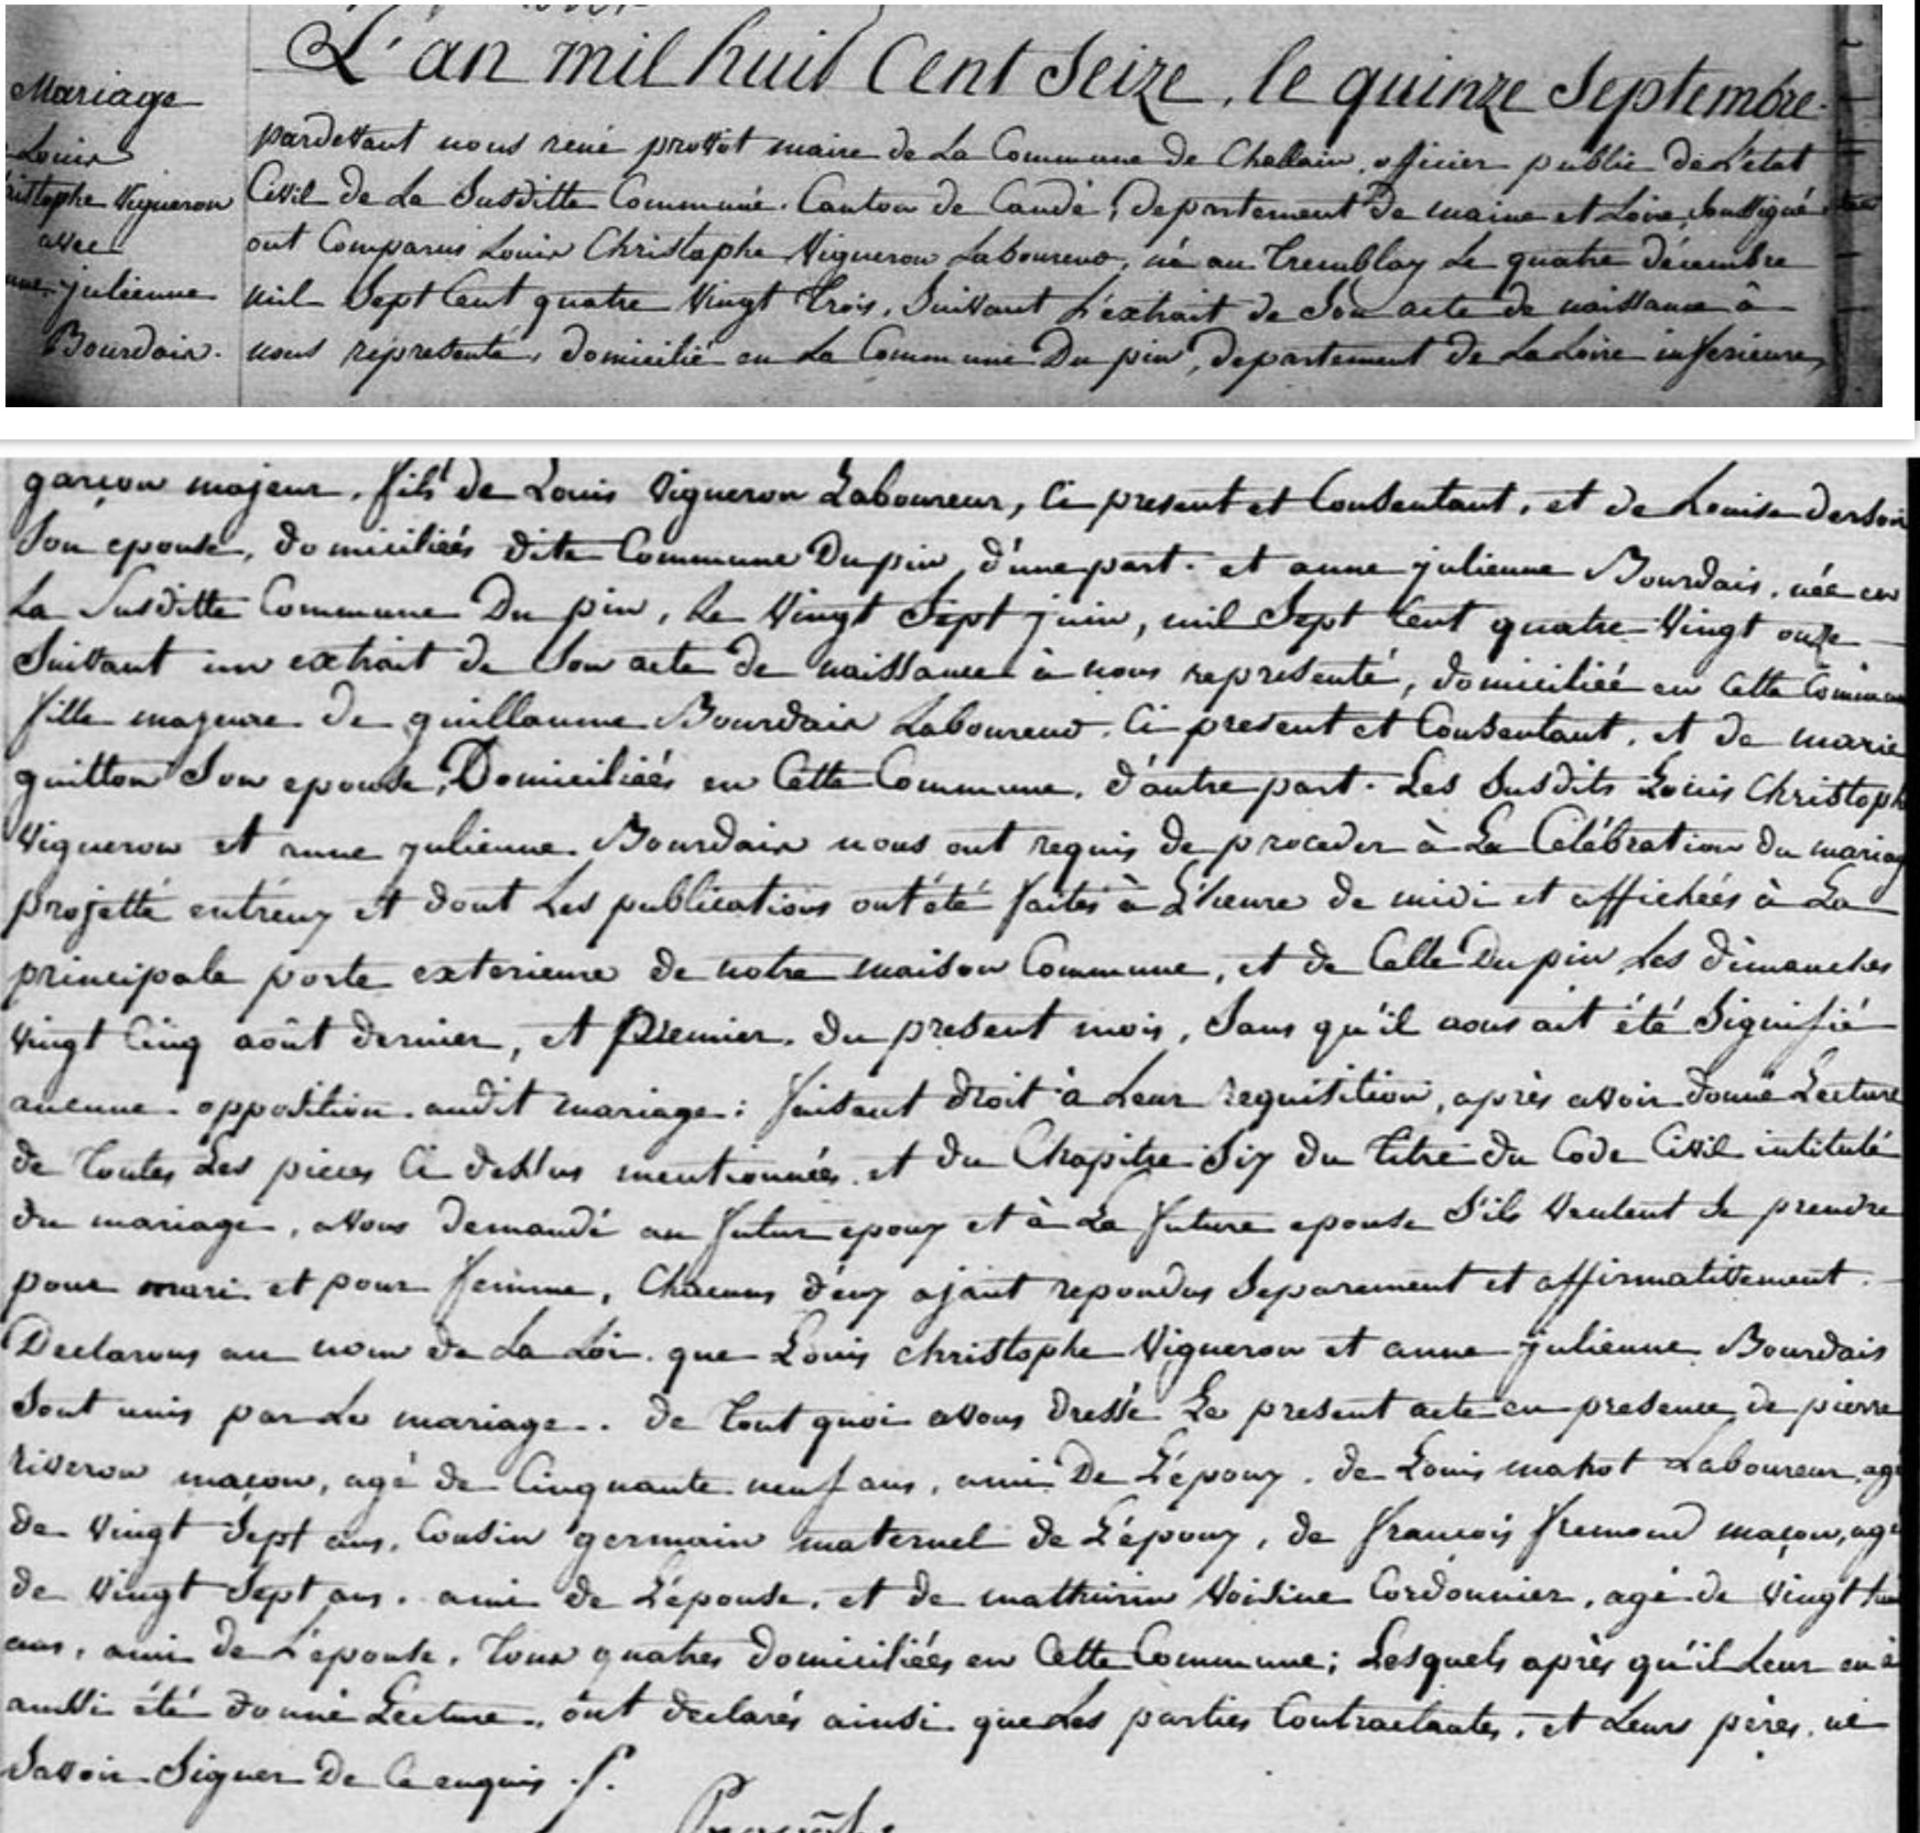 L'an mil huit Cent Seize, le quinze Septembre
Mariage
Louis
Christophe Vigneron
avec
anne julienne
Bourdais.
pardevant nous rené provôt maire de La Commune de Challain, officier public de L'état
Civil de La Susditte Commune. Canton de Candé, departement De maine et Loire, Soussigné
ont Comparus Louis Christophe Vigneron Laboureur, né au Tremblay Le quatre décembre
mil Sept Cent quatre Vingt Trois, Suivant L'extrait de Son acte de naissance à
nous representé, domicilié en La Commune Du pin, departement de La Loire inferieure,
garçon majeur, fils de Louis Vigneron Laboureur, Ci present et Consentant, et de Louise
Son epouse, domiciliés dite Commune Du pin, d'une part. et anne julienne Bourdais, née en
La Susditte Commune Du pin, Le Vingt Sept juin, mil Sept Cent quatre Vingt onze
Suivant un extrait de Son acte de naissance à nous representé, domiciliée en Cette Commune
fille majeure de guillaume Bourdais Laboureur. Ci present et Consentant, et de marie
guitton Son epouse, Domiciliés en Cette Commune, d'autre part. Les Susdits Louis Christophe
Vigneron et anne julienne Bourdais nous ont requis de proceder à La Célébration du mariage
projetté entr'eux et dont Les publications ont été faites à L'heure de midi et affichées à La
principale porte exterieure de notre maison Commune, et de Celle Du pin, Les dimanches
Vingt Cinq août dernier, et Premier du present mois, Sans qu'il nous ait été Signifié
aucune opposition audit mariage: faisant droit à Leur requisition, après avoir donné Lecture
de Toutes Les pieces Ci dessus mentionnées, et du Chapitre Six du Titre du Code Civil intitulé
du mariage, avons demandé au futur epoux et à La future epouse S'ils Veulent Se prendre
pour mari et pour femme, Chacuns d'eux ajant repondus Separement et affirmativement.
Declarons au nom de La Loi que Louis christophe Vigneron et anne julienne Bourdais
Sont unis par Le mariage. de Tout quoi avons Dressé Le present acte en presence de pierre
riveron maçon, agé de Cinquante neuf ans, ami De L'epoux, de Louis mahot Laboureur, agé
de Vingt Sept ans, Cousin germain maternel de L'epoux, de francois fremond maçon, agé
de Vingt Sept ans. ami de L'epouse, et de mathurin Voisine Cordonnier, agé de Vingt huit
ans, ami de L'epouse, Tous quatres domiciliés en Cette Commune; Lesquels après qu'il Leur en à
aussi été donné Lecture, ont declarés ainsi que Les parties Contractantes, et Leurs pères, né
Savoir Signer De Ce enquis ./.